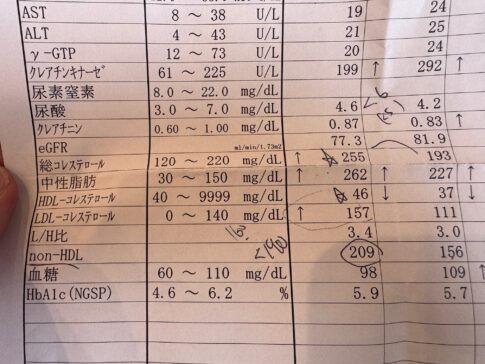 AST 8 ～ 38 U/L 19 24
ALT 4 ～ 43 U/L 21 25
γ-GTP 12 ～ 73 U/L 20 24
クレアチンキナーゼ 61 ～ 225 U/L 199 ↑ 292 ↑
尿素窒素 8.0 ～ 22.0 mg/dL
尿酸 3.0 ～ 7.0 mg/dL 4.6 4.2
クレアチニン 0.60 ～ 1.00 mg/dL 0.87 0.83 ↑
eGFR ml/min/1.73m2 77.3 81.9
総コレステロール 120 ～ 220 mg/dL ↑ 255 193
中性脂肪 30 ～ 150 mg/dL ↑ 262 ↑ 227 ↑
HDL-コレステロール 40 ～ 9999 mg/dL 46 ↓ 37 ↓
LDL-コレステロール 0 ～ 140 mg/dL ↑ 157 111
L/H比 3.4 3.0
non-HDL 209 156
血糖 60 ～ 110 mg/dL 98 109 ↑
HbA1c(NGSP) 4.6 ～ 6.2 % 5.9 5.7